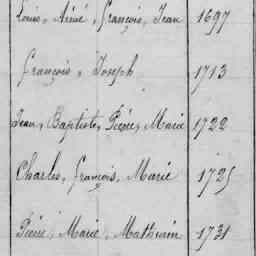 Louis, Aimé, François, Jean 1697
François, Joseph 1713
Jean, Baptiste, Pierre, Marie 1722
Charles, François, Marie 1725
Pierre, Marie, Mathurin 1731